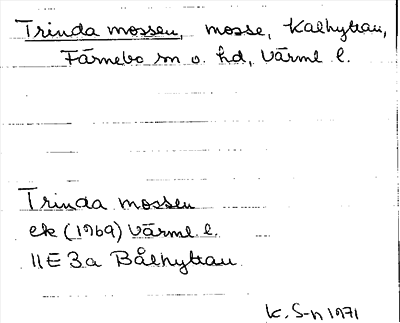 Trinda mossen, mosse, Kalhyttan,
Färnebo sn o. hd, Värml l.
Trinda mossen
ek (1969) Värml l.
11E 3a Bålhyttan
K. S-n 1971